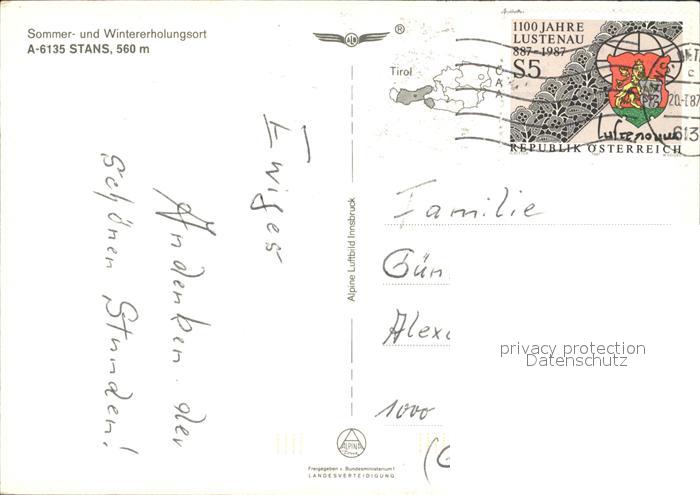 Sommer- und Wintererholungsort
A-6135 STANS, 560 m
ALD
®
Tirol
1100 JAHRE
LUSTENAU
887-1987
S5
20.-1.87
613
Lustenau
REPUBLIK ÖSTERREICH
Ewiges
Andenken der
schönen Stunden!
Alpine Luftbild Innsbruck
Familie
Gün
Alex
1000
(
privacy protection
Datenschutz
ALPINA
Druck
Freigegeben v. Bundesministerium f.
LANDESVERTEIDIGUNG